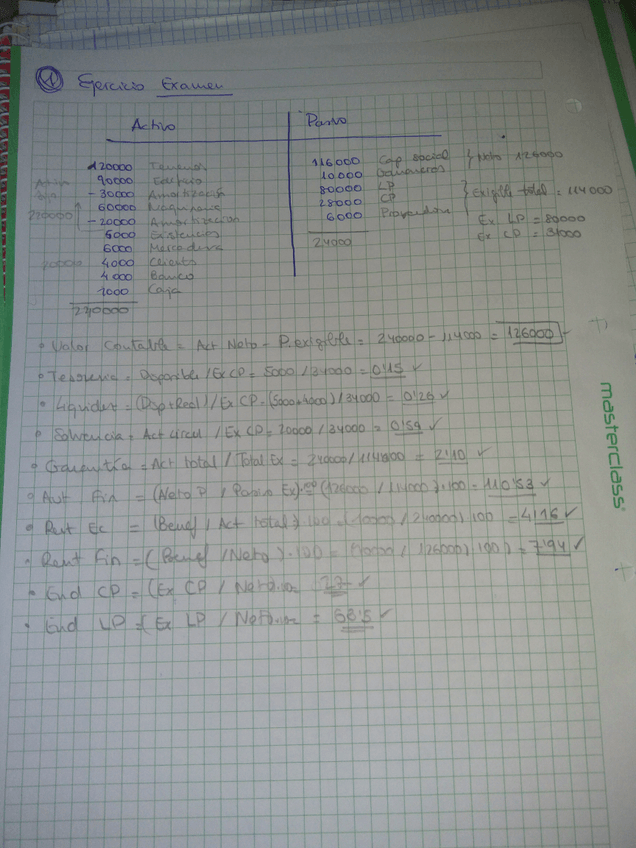 ① Ejercicio Examen
Activo
Pasivo
120000 Terrenos
90000 Edificio
- 30000 Amortización
60000 Maquinaria
- 20000 Amortización
6000 Existencias
6000 Mercaderia
4000 Clientes
4000 Banco
1000 Caja
116000 Cap social
10000
80000 LP
28000 CP
6000 Proveedores
} Neto: 126000
} Exigible total = 114000
Ex LP = 80000
Ex CP = 34000
220000
20000
24000
• Valor Contable = Act Neto - P. exigible = 240000 - 114000 = 126000
• Tesoreria = Disponible / Ex CP = 5000 / 34000 = 0'15 ✓
• Liquidez = (Disp + Real) / Ex CP = (5000 + 4000) / 34000 = 0'26 ✓
• Solvencia = Act circul / Ex CP = 20000 / 34000 = 0'59 ✓
• Garantía = Act total / Total Ex = 240000 / 114000 = 2'10 ✓
• Aut Fin = (Neto P / Pasivo Ex)·100 (126000 / 114000)·100 = 110'53 ✓
• Rent Ec = (Benef / Act total)·100 = (10000 / 240000) 100 = 4'16 ✓
• Rent Fin = (Benef / Neto)·100 = (10000 / 126000) 100) = 7'94 ✓
• End CP = (Ex CP / Neto)·100 = 27 ✓
• End LP = (Ex LP / Neto)·100 = 63'5 ✓
masterclass